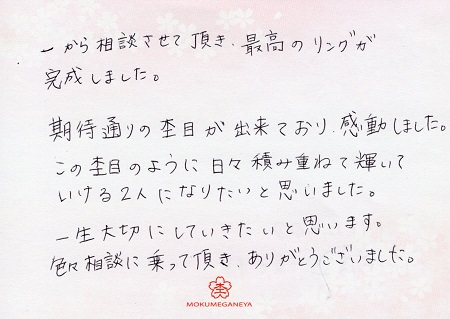 一から相談させて頂き、最高のリングが
完成しました。
期待通りの杢目が出来ており、感動しました。
この杢目のように日々積み重ねて輝いて
いける2人になりたいと思いました。
一生大切にしていきたいと思います。
色々相談に乗って頂き、ありがとうございました。
杢
MOKUMEGANEYA